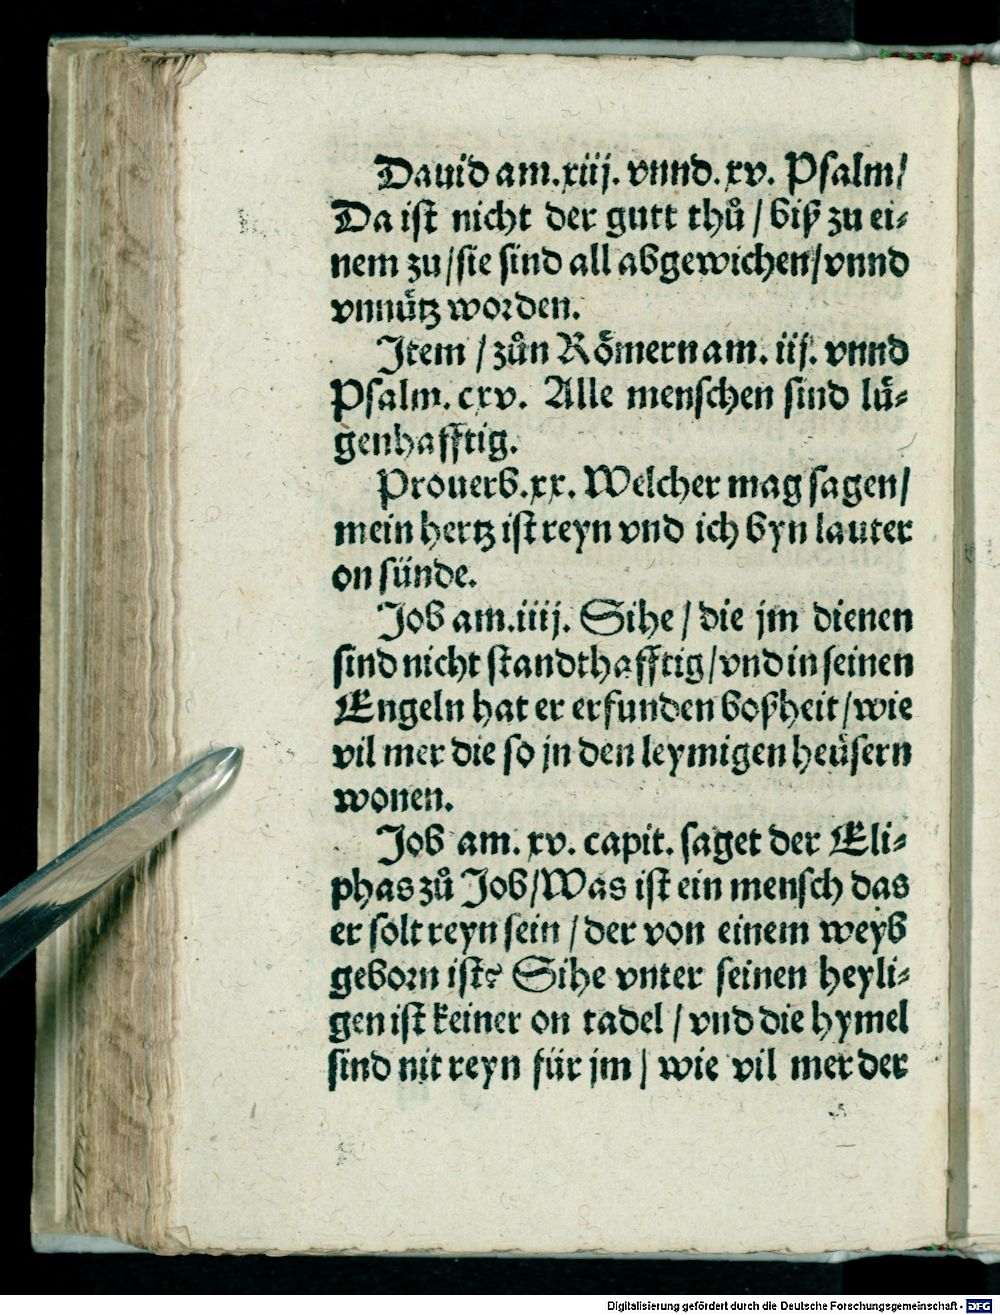 Dauid am.xiij. vnnd. xv. Psalm/
Da ist nicht der gutt thů / biß zu ei⸗
nem zu/sie sind all abgewichen/vnnd
vnnütz worden.
Item / zůn Römern am. iij. vnnd
Psalm. cxv. Alle menschen sind lü⸗
genhafftig.
Prouerb.xx. Welcher mag sagen/
mein hertz ist reyn vnd ich byn lauter
on sünde.
Job am.iiij. Sihe / die jm dienen
sind nicht standthafftig/vnd in seinen
Engeln hat er erfunden boßheit/wie
vil mer die so jn den leymigen heüsern
wonen.
Job am. xv. capit. saget der Eli⸗
phas zů Job/Was ist ein mensch das
er solt reyn sein / der von einem weyb
geborn ist? Sihe vnter seinen heyli⸗
gen ist keiner on tadel / vnd die hymel
sind nit reyn für jm / wie vil mer der
Digitalisierung gefördert durch die Deutsche Forschungsgemeinschaft - DFG